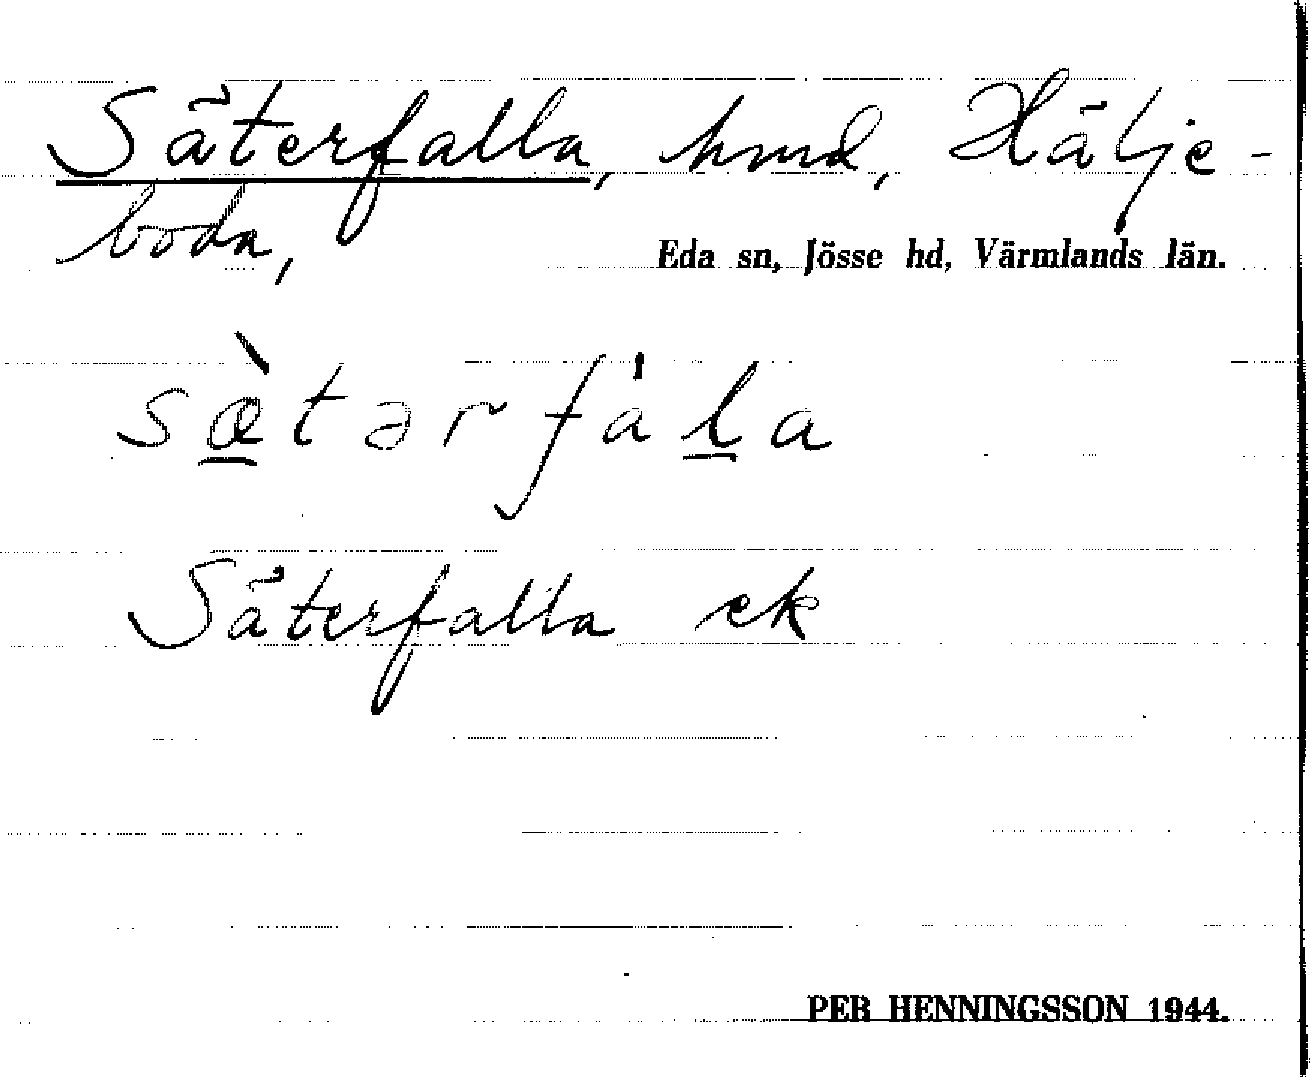 Säterfalla, hmd, Hälje-
boda,
Eda sn, Jösse hd, Värmlands län.
sæ̀tərfàla
Säterfalla ek
PER HENNINGSSON 1944.